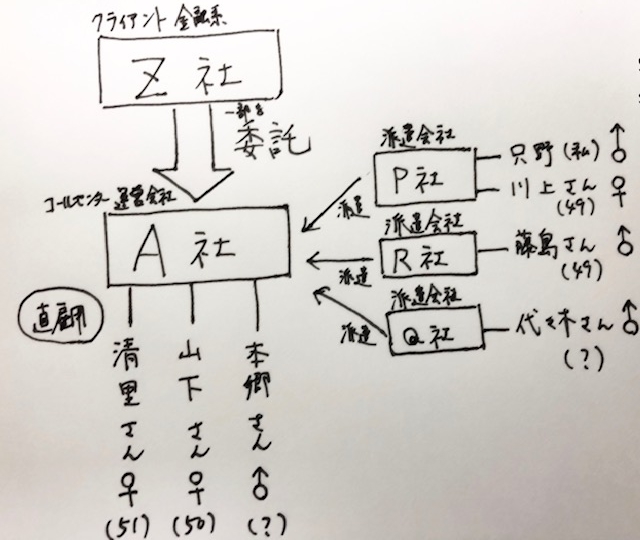 クライアント 金融系
Z社
一部を
委託
コールセンター運営会社
A社
直雇用
清里さん ♀ (51)
山下さん ♀ (50)
本郷さん ♂ (?)
派遣会社
P社
派遣
只野(私) ♂
川上さん ♀
(49)
派遣会社
R社
派遣
藤島さん ♂
(49)
派遣会社
Q社
派遣
代々木さん ♂
(?)